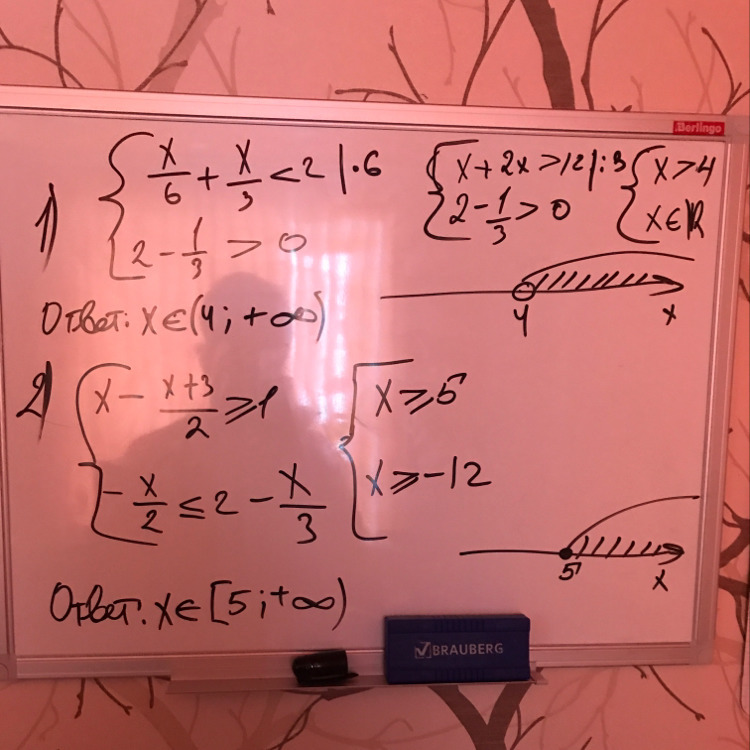 Berlingo
1) { x/6 + x/3 < 2 | · 6
2 - 1/3 > 0
{ x + 2x > 12 | : 3
2 - 1/3 > 0
{ x > 4
x ∈ R
4 x
Ответ: x ∈ (4; +∞)
2) { x - (x+3)/2 ≥ 1
- x/2 ≤ 2 - x/3
{ x ≥ 5
x ≥ -12
5 x
Ответ: x ∈ [5; +∞)
BRAUBERG